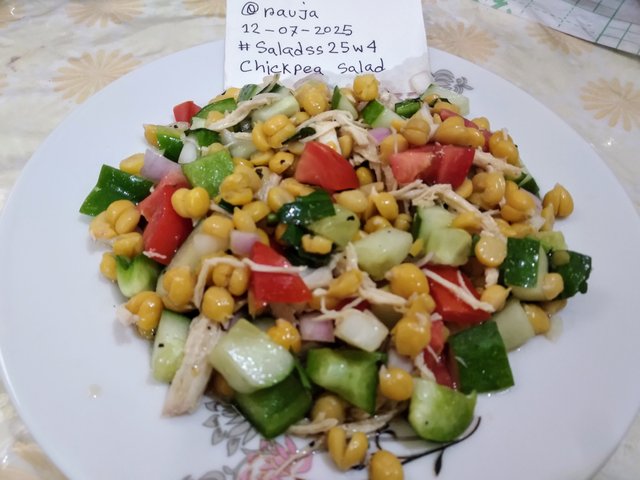 @pauja
12-07-2025
#Saladss25w4
Chickpea Salad